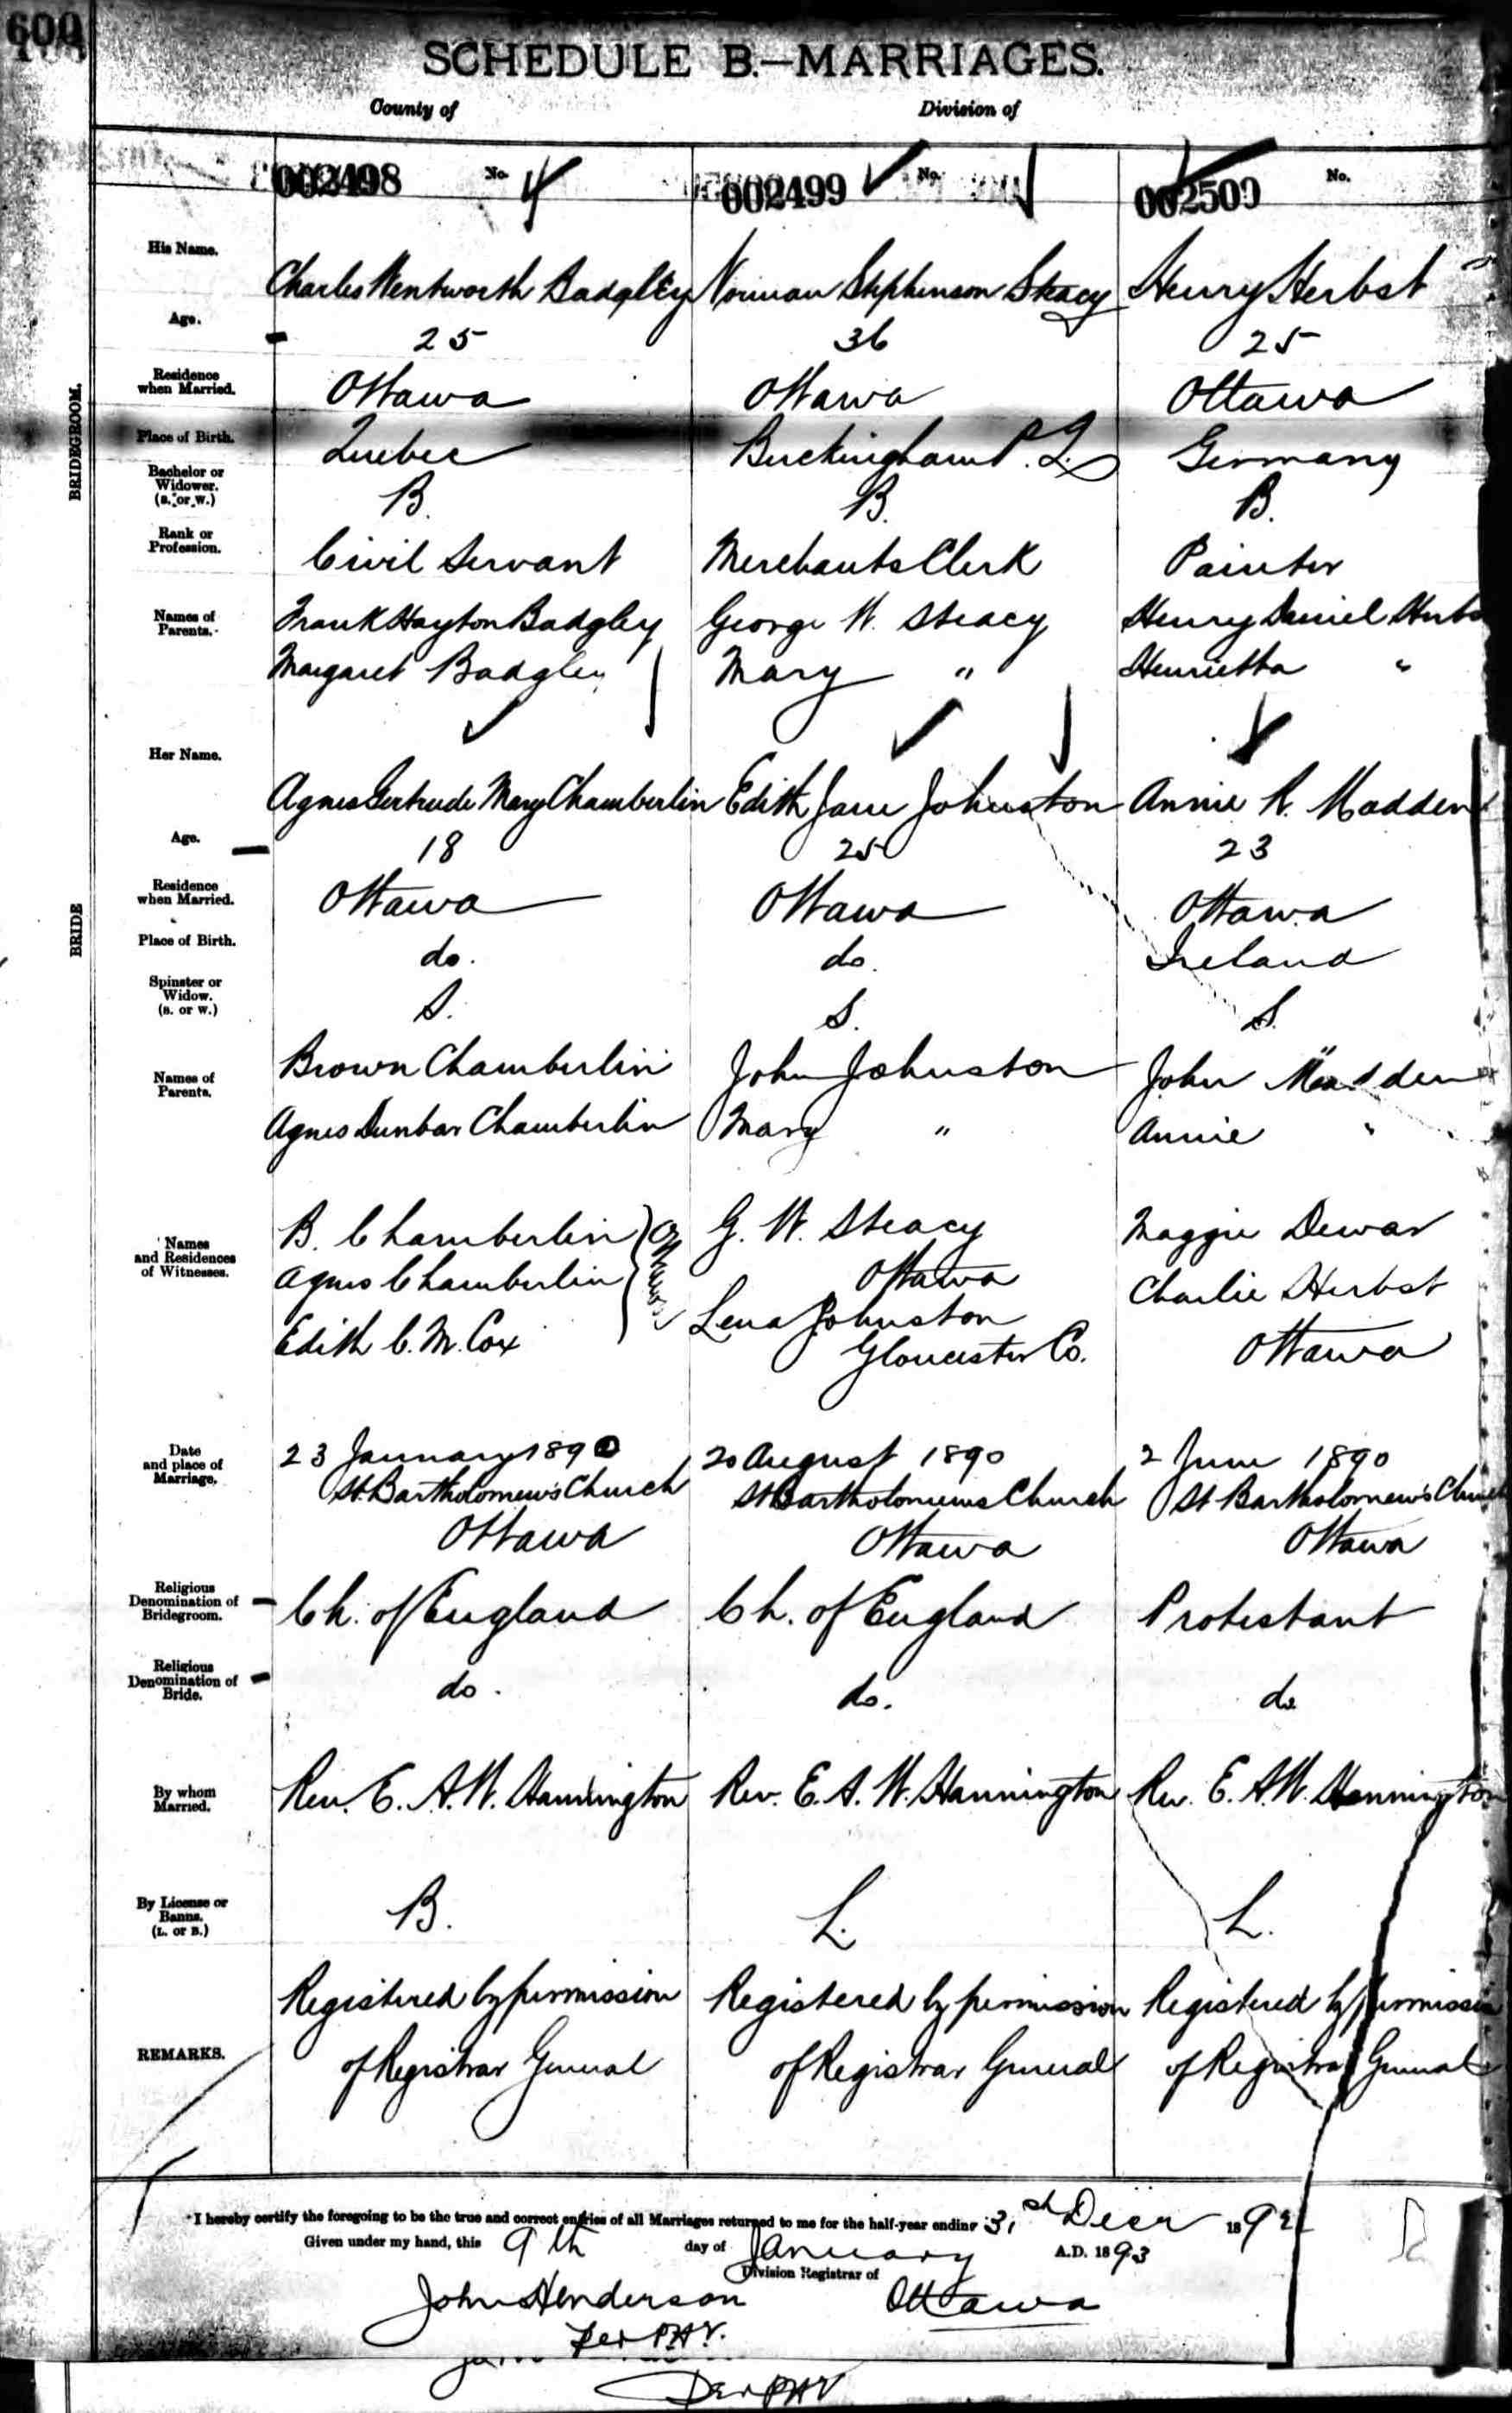 600
SCHEDULE B.—MARRIAGES.
County of
Division of
002498 No. 4
002499 No.
002500 No.
BRIDEGROOM.
His Name.
Charles Wentworth Badgley
Norman Stephenson Steacy
Henry Herbst
Age.
25
36
25
Residence
when Married.
Ottawa
Ottawa
Ottawa
Place of Birth.
Quebec
Buckingham P.Q.
Germany
Bachelor or
Widower.
(B. or W.)
B.
B.
B.
Rank or
Profession.
Civil Servant
Merchants Clerk
Painter
Names of
Parents.
Frank Hayton Badgley
Margaret Badgley
George W. Steacy
Mary "
Henry Daniel
Henrietta "
BRIDE
Her Name.
Agnes Gertrude Mary Chamberlin
Edith Jane Johnston
Annie R. Madden
Age.
18
25
23
Residence
when Married.
Ottawa
Ottawa
Ottawa
Place of Birth.
do.
do.
Ireland
Spinster or
Widow.
(S. or W.)
S.
S.
S.
Names of
Parents.
Brown Chamberlin
Agnes Dunbar Chamberlin
John Johnston
Mary "
John Madden
Annie "
Names
and Residences
of Witnesses.
B. Chamberlin
Agnes Chamberlin
Edith C. M. Cox
Ottawa
G. W. Steacy
Ottawa
Lena Johnston
Gloucester Co.
Maggie Dewar
Charlie Herbst
Ottawa
Date
and place of
Marriage.
23 January 1890
St. Bartholomew's Church
Ottawa
20 August 1890
St Bartholomews Church
Ottawa
2 June 1890
St Bartholomew's Church
Ottawa
Religious
Denomination of
Bridegroom.
Ch. of England
Ch. of England
Protestant
Religious
Denomination of
Bride.
do.
do.
do
By whom
Married.
Rev. E. A. W. Hannington
Rev. E. A. W. Hannington
Rev. E. A. W. Hannington
By License or
Banns.
(L. or B.)
B.
L.
L.
REMARKS.
Registered by permission
of Registrar General
Registered by permission
of Registrar General
Registered by permission
of Registrar General
I hereby certify the foregoing to be the true and correct entries of all Marriages returned to me for the half-year ending 31st Decr 1892
Given under my hand, this 9th day of January A.D. 1893
Division Registrar of
John Henderson Ottawa
per PHY.
Per PHY